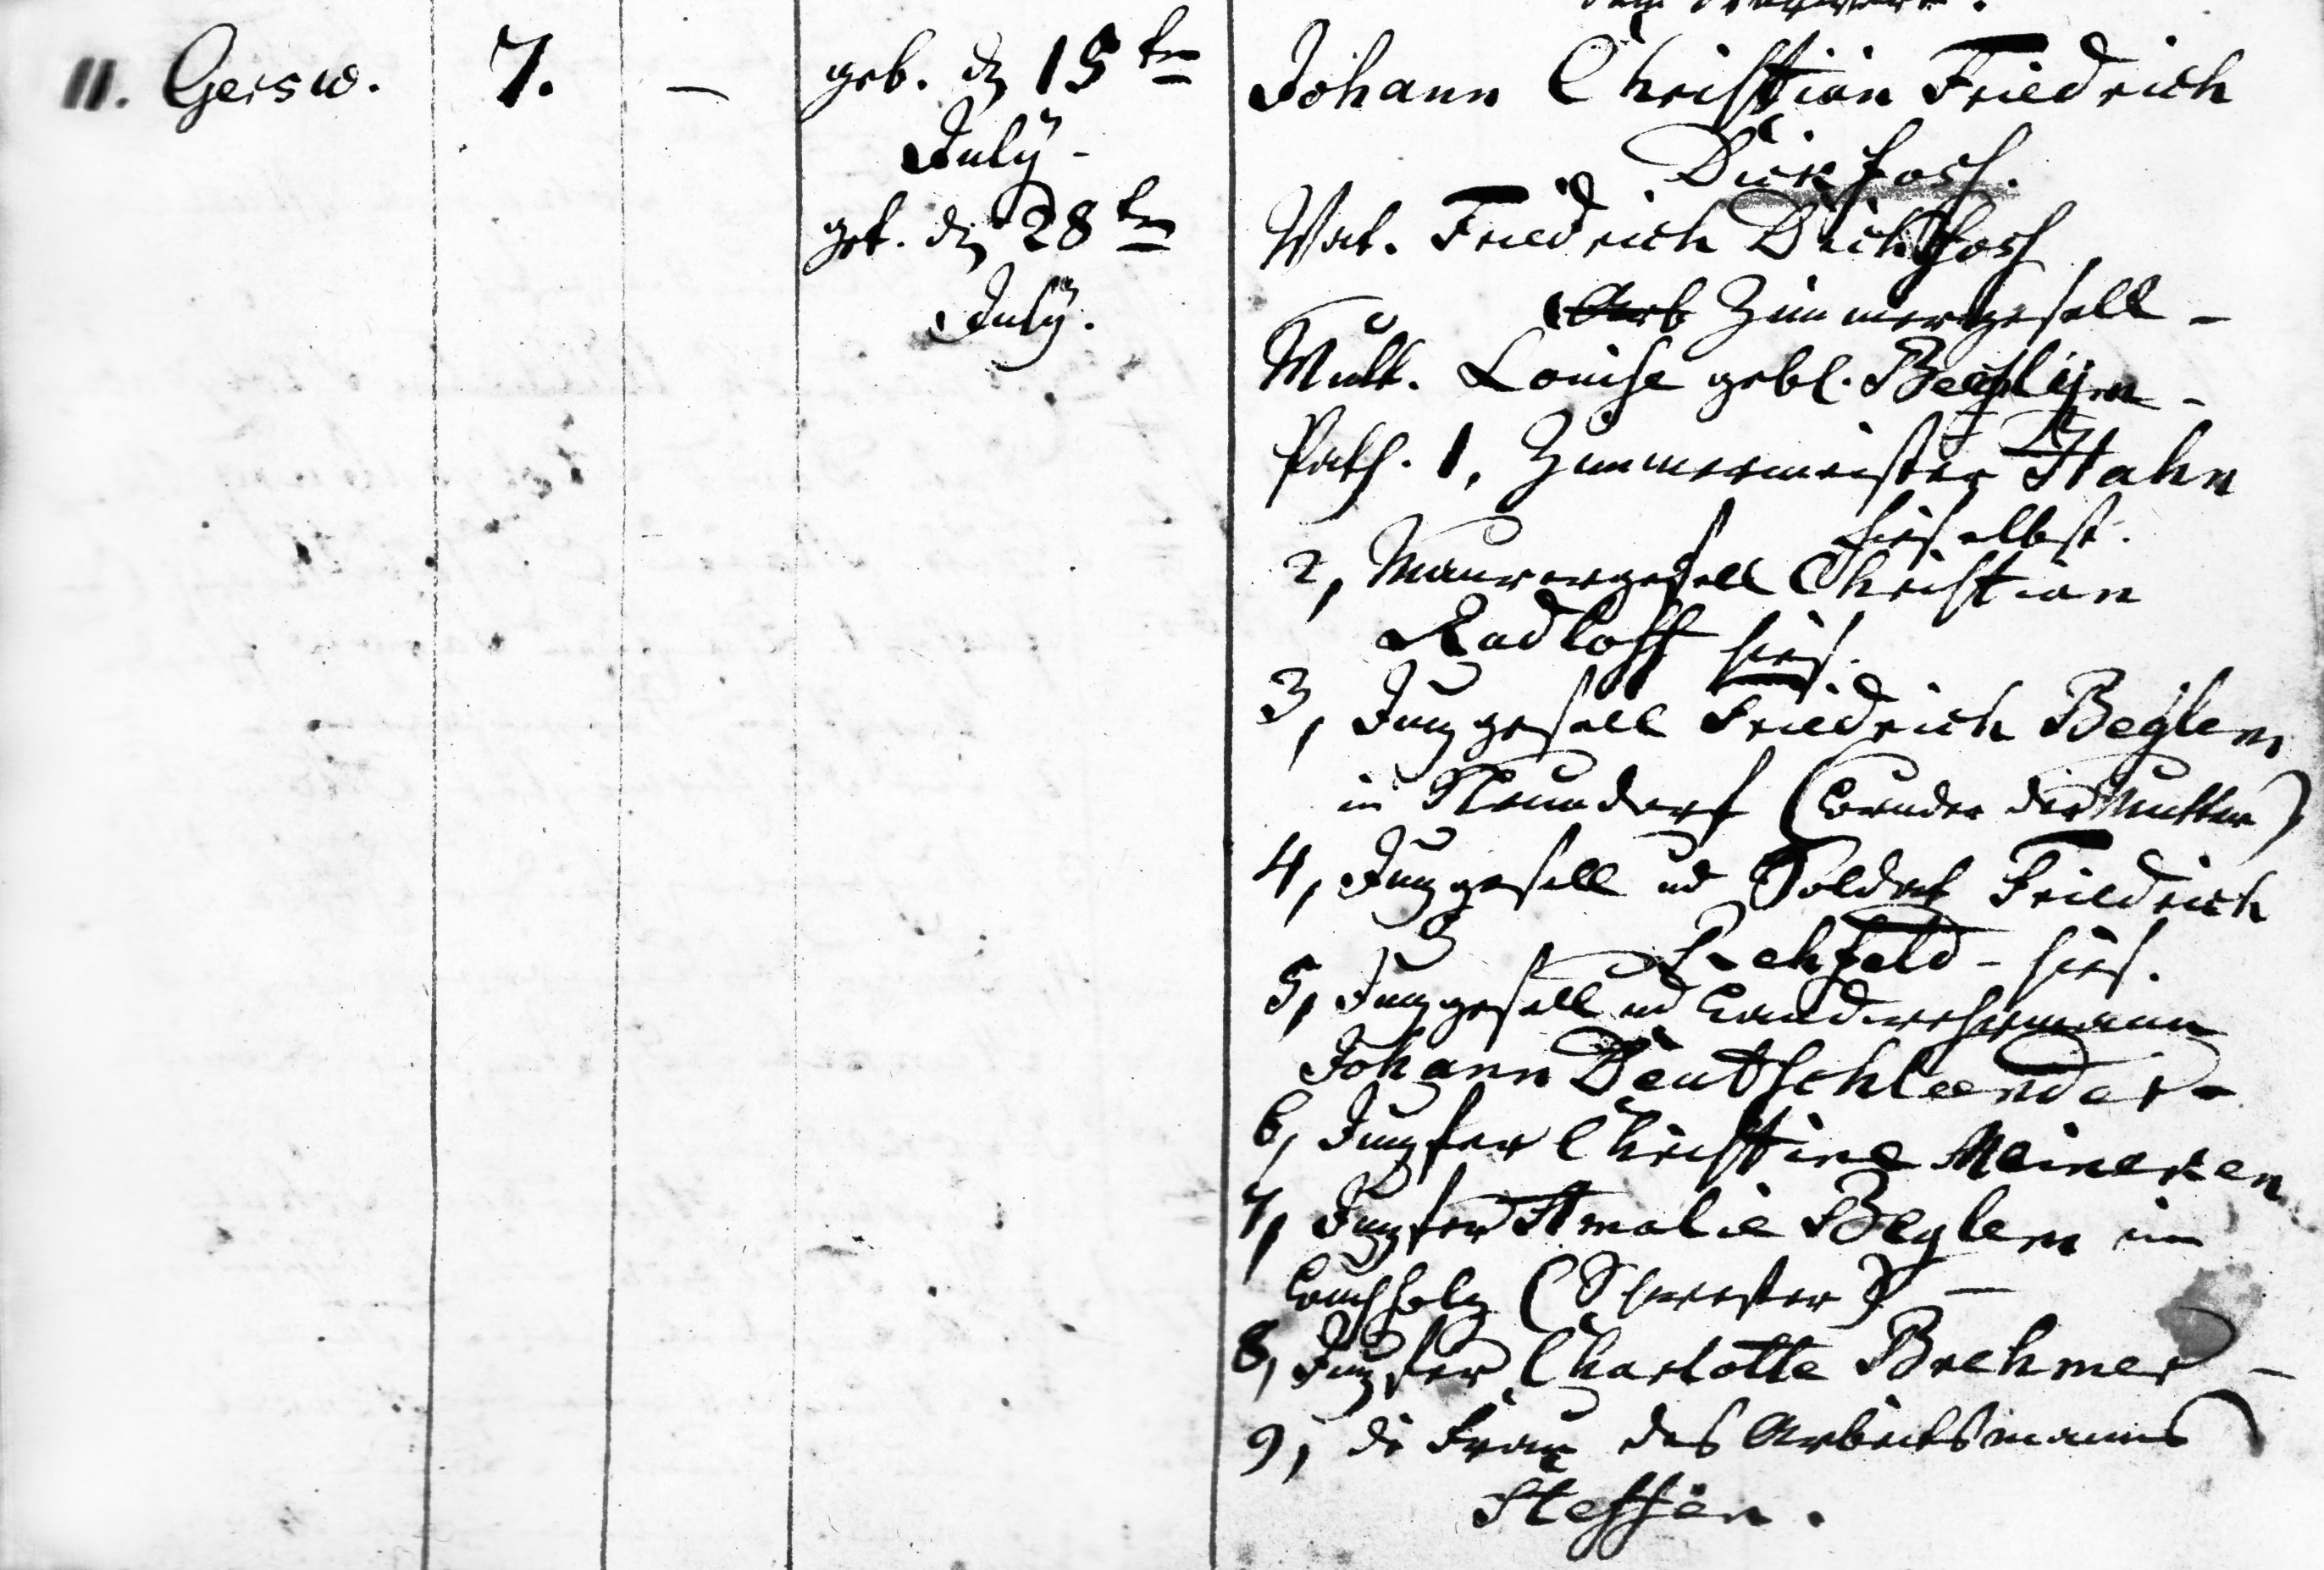 11. Gersw. 7. — geb. d 15ten Johann Christian Friedrich
July - Dickhoff.
get. d 28ten Vat. Friedrich Dickhoff,
July. Arb Zimmergesell -
Mutt. Louise gebl. Beglem -
Path. 1, Zimmermeister Hahn
hieselbst.
2, Maurergesell Christian
Radloff hies.
3, Junggesell Friedrich Beglem
in (Bruder der Mutter)
4, Junggesell ud Soldat Friedrich
Rehfeld - hies.
5, Junggesell ud Landwehrmann
Johann Deutschlænder -
6, Jungfer Christine Meineken
7, Jungfer Amalie Beglem in
Buchholz (Schwester) —
8, Jungfer Charlotte Brehmer —
9, die Frau des Arbeitsmanns
Steffen.